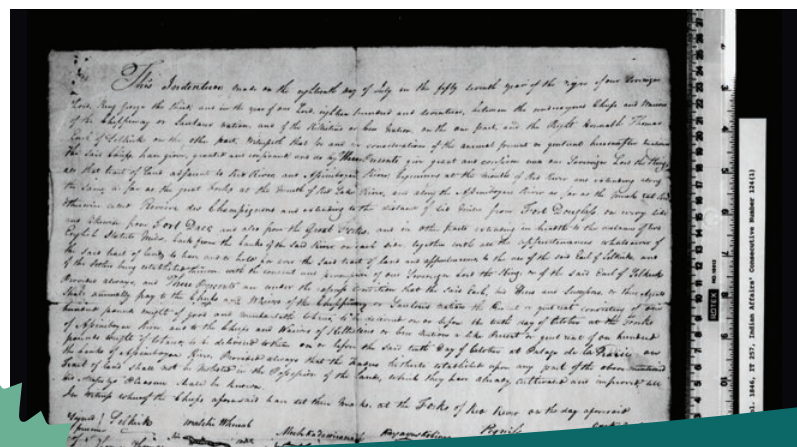 This Indenture made on the eighteenth day of July in the fifty seventh year of the reign of our Sovereign
Lord King George the third, and in the year of our Lord eighteen hundred and seventeen, between the undersigned Chiefs and Warriors
of the Chippeway or Sautaux nation, and of the Killistino or Cree Nation, on the one part, and the Right Honorable Thomas
Earl of Selkirk on the other part, Witnesseth that for and in consideration of the annual present or quit rent hereinafter mentioned
the said Chiefs have given, granted and confirmed and do by these Presents give grant and confirm unto our Sovereign Lord the King
all that tract of land adjacent to Red River and Assiniboyne River, beginning at the mouth of Red River and extending along
the same as far as the great Forks at the mouth of Red Lake River, and along the Assiniboyne River as far as the Musk rat
otherwise called Rivière des Champignons and extending to the distance of six miles from Fort Douglass on every side
and likewise from Fort Daer and also from the Great Forks, and in other parts extending in breadth to the distance of two
English Statute Miles, back from the banks of the said River on each side, together with all the appurtenances whatsoever of
the said tract of land, to have and to hold for ever the said tract of land and appurtenances to the use of the said Earl of Selkirk, and
of the Settlers being established thereon with the consent and permission of our Sovereign Lord the King or of the said Earl of Selkirk
Provided always, and These Presents are under the express condition that the said Earl, his Heirs and Successors, or their Agents
shall annually pay to the Chiefs and Warriors of the Chippeway or Sautaux nation the Present or quit rent consisting of one
hundred pounds weight of good and merchantable tobacco, to be delivered on or before the tenth day of October at the Forks
of Assiniboyne River, and to the Chiefs and Warriors of Killistino or Cree nation a like Present or quit rent of one hundred
pounds weight of tobacco, to be delivered to them on or before the said tenth day of October at Portage de la Prairie, on
the banks of Assiniboyne River, Provided always that the traders hitherto established upon any part of the above mentioned
Tract of land shall not be molested in the Possession of the lands, which they have already cultivated and improved, till
his Majesty's Pleasure shall be known.
In witness whereof the Chiefs aforesaid have set their marks, at the Forks of Red River on the day aforesaid
Signed Selkirk
ROTEX
Vol. 1846, IT 257, Indian Affairs' Consecutive Number 124(1)